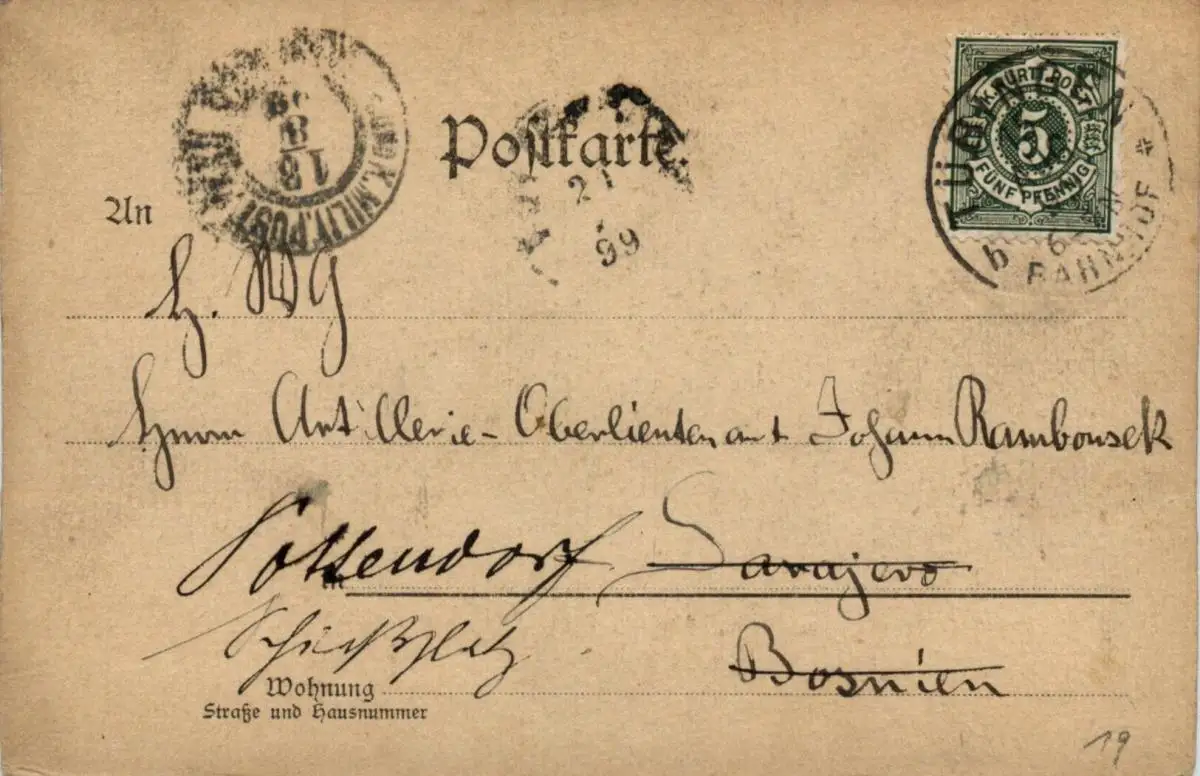 K. U. K. MILIT. POST
18
8
99
Postkarte.
21
99
K. WÜRTT. POST
5
FÜNF PFENNIG
TÜBINGEN
BAHNHOF
An
Herrn Artillerie-Oberlieutenant Johann Rambousek
Pottendorf Sarajevo
in
Schießplatz
Bosnien
Wohnung
Straße und Hausnummer
19